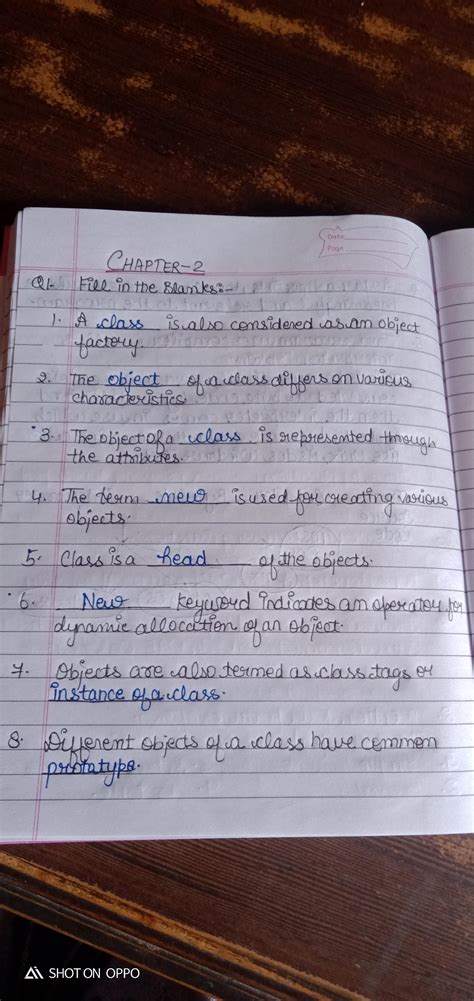 Date
Page
CHAPTER-2
Q1- Fill in the Blanks:-
1. A class is also considered as an object
factory.
2. The object of a class differs on various
characteristics
3. The object of a class is represented through
the attributes.
4. The term new is used for creating various
objects.
5. Class is a head of the objects.
6. New keyword indicates an operator for
dynamic allocation of an object.
7. Objects are also termed as class tags or
instance of a class.
8. Different objects of a class have common
prototype.
SHOT ON OPPO